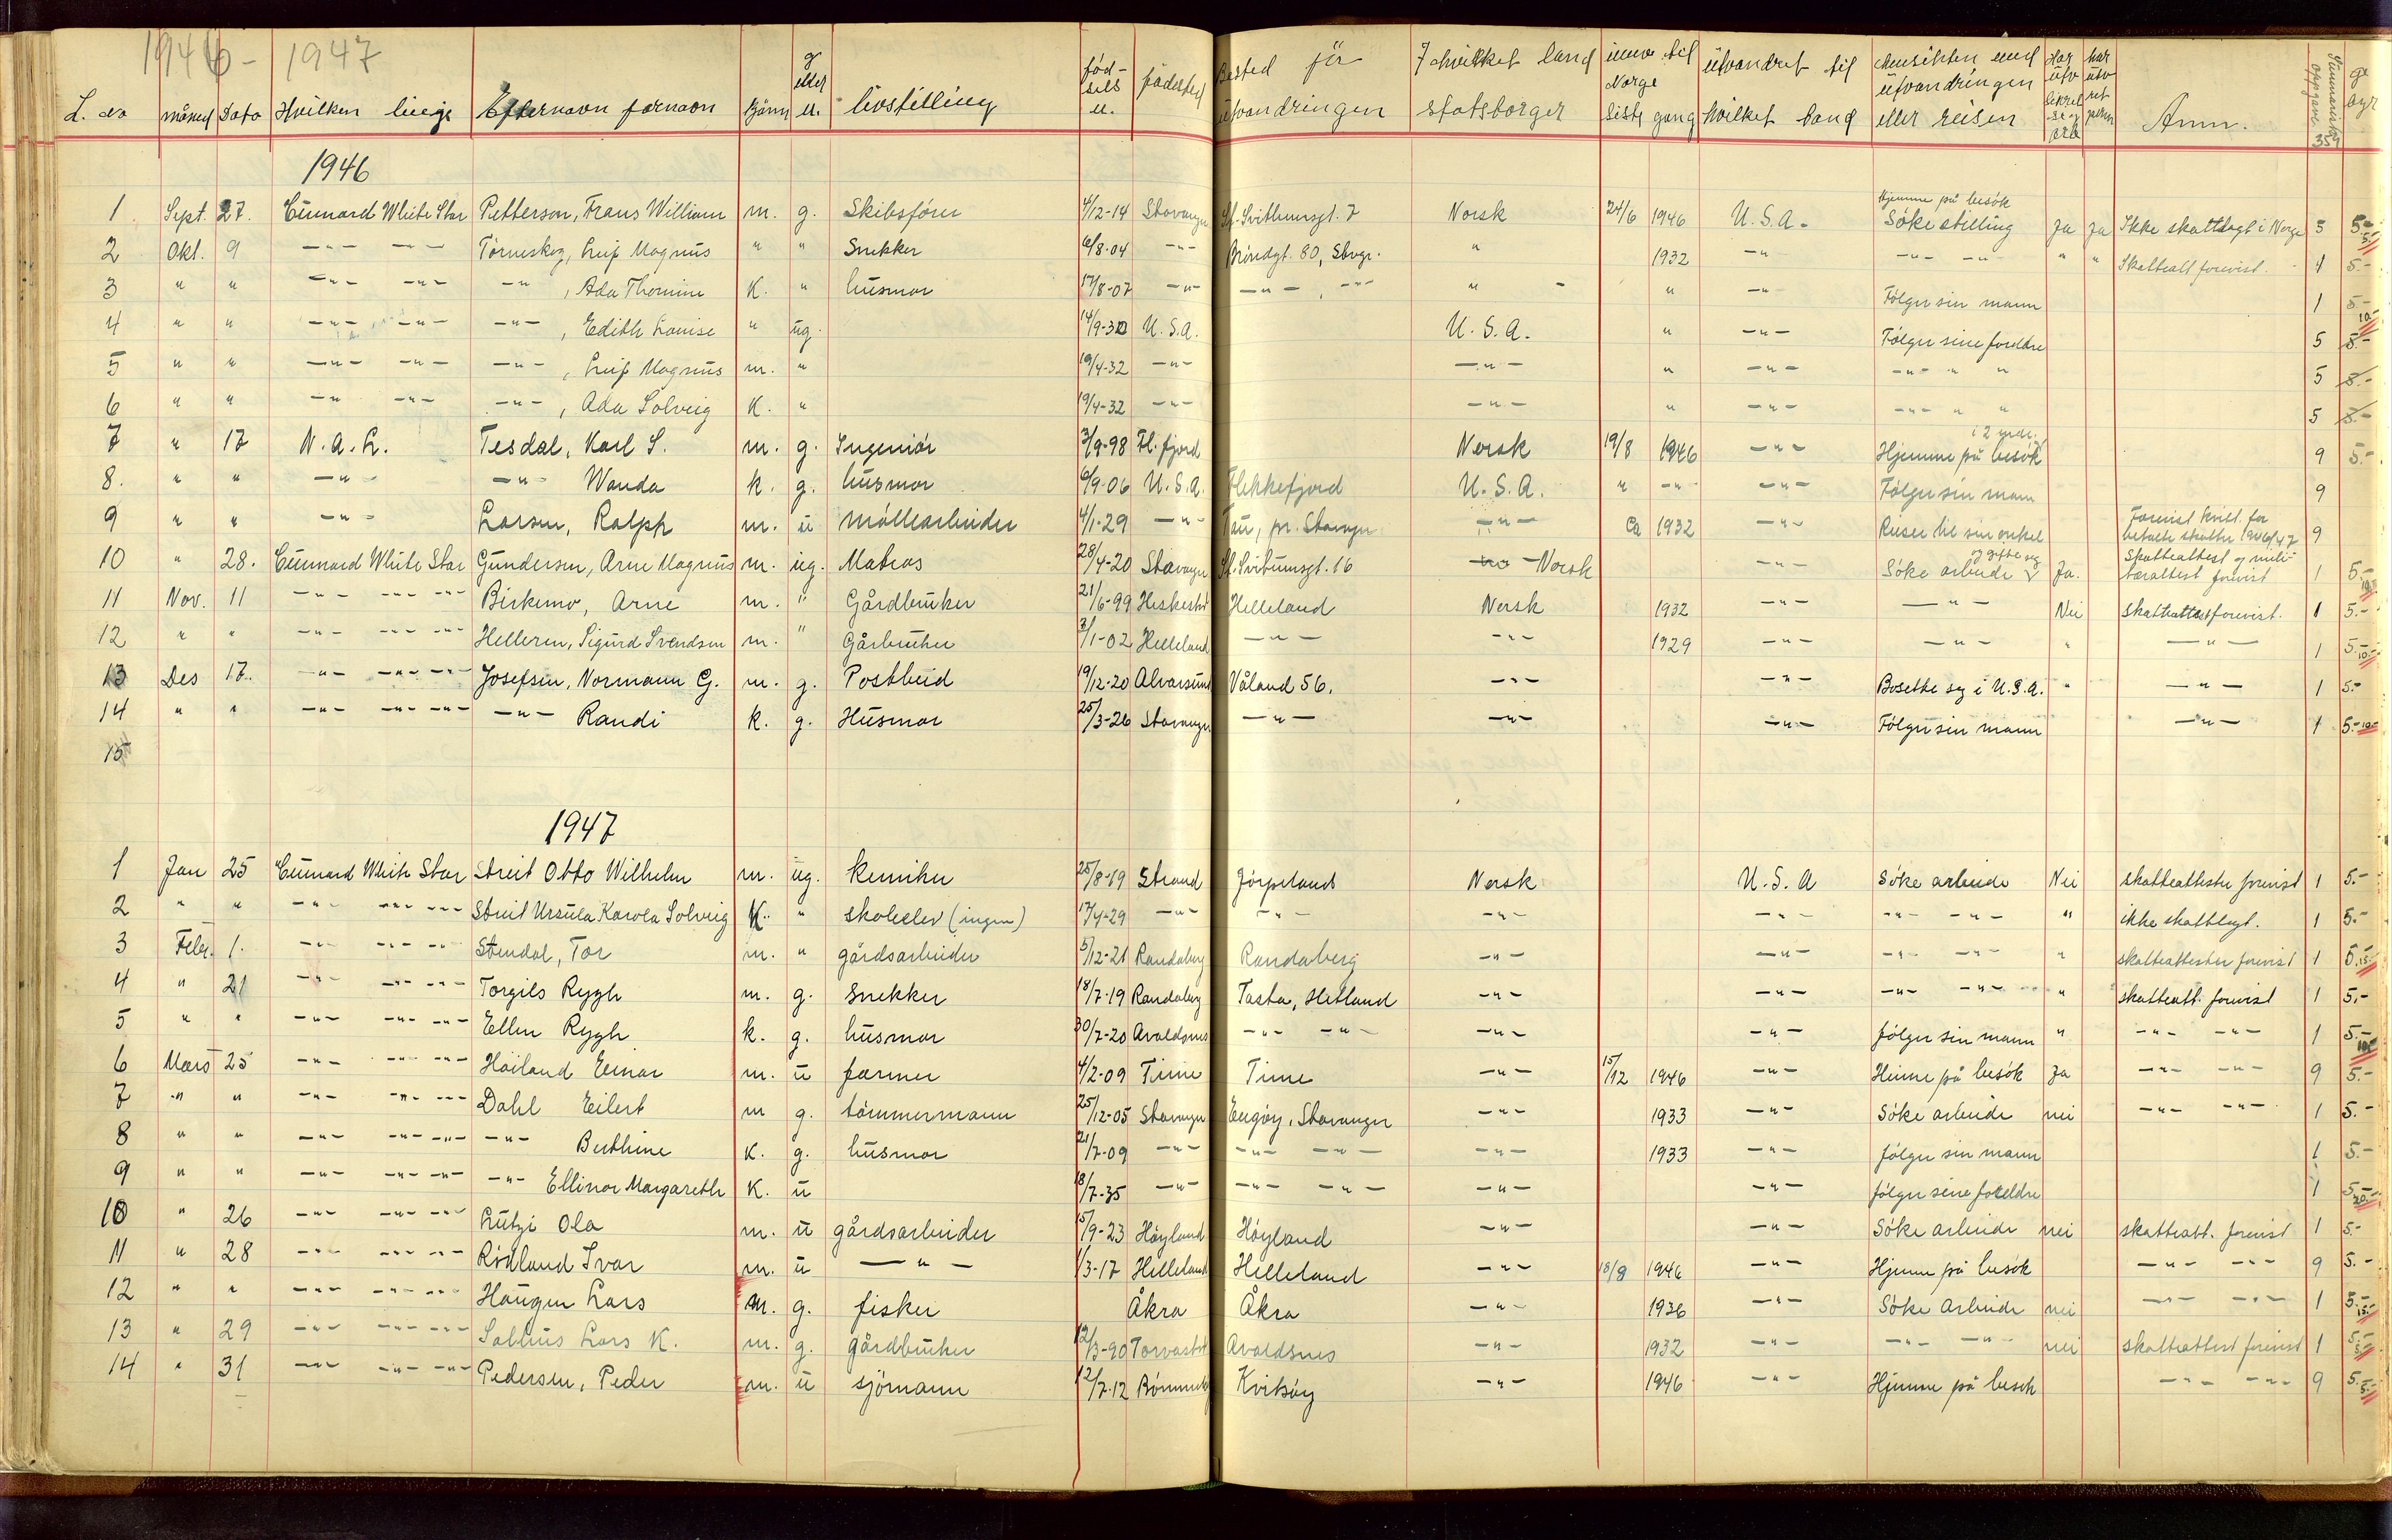 1946 - 1947
L. No måned Dato Hvilken linje Efternavn fornavn kjönn g eller u. livsstilling föd-sels d. födested Bosted før utvandringen I hvilket land statsborger inne til Norge siste gang utvandret til hvilket land Hensikten med utvandringen eller reisen Har utv sikret seg arb Har utv ret Anm. Summarisk oppgave 359 ge byr
1946
1 Sept. 27. Cunard White Star Petterson, Frans William m. g. Skibsfører 4/12-14 Stavanger St. Svithunsgt. 7 Norsk 24/6 1946 U.S.A. Hjemme på besök Söke stilling Ja ja Ikke skattlagt i Norge 5 5.-
2 Okt. 9 -"- -"- Törneskog, Leif Magnus " " Snekker 6/8-04 -"- Bröndgt. 80, Stvgr. " 1932 -"- -"- -"- " " Skatteatt forevist. 1 5.-
3 " " -"- -"- -"- , Ada Thomine K. " husmor 17/8-07 -"- -"- , -"- " " -"- Fölger sin mann 1 5.- 10.-
4 " " -"- -"- -"- , Edith Louise " ug. 14/9-30 U.S.A. U.S.A. " -"- Fölger sine foreldre 5 5.-
5 " " -"- -"- -"- , Leif Magnus m. " 19/4-32 -"- -"- " -"- -"- " " 5 5.-
6 " " -"- -"- -"- , Ada Solveig K. " 19/4-32 -"- -"- " -"- -"- " " 5 5.-
7 " 17 N.A.L. Tesdal, Karl S. m. g. Ingeniör 3/9-98 Fl.fjord Norsk 19/8 1946 -"- Hjemme på besök i 2 mdr. 9 5.-
8. " " -"- -"- Wanda k. g. husmor 6/9-06 U.S.A. Flekkefjord U.S.A. " -"- -"- Fölger sin mann 9
9 " " -"- Larsen, Ralph m. u möllearbeider 4/1-29 -"- Tau, pr. Stavanger -"- Ca 1932 -"- Reiser til sin onkel Forevist kvitt. for betalte skatter 1946/47 9
10 " 28. Cunnard White Star Gundersen, Arne Magnus m. ug. Matros 28/4-20 Stavanger St. Svitunsgt. 16 Norsk -"- Söke arbeide og gifte seg Ja. Skatteattest og mili-tærattest forevist 1 5.-
11 Nov. 11 -"- -"- -"- Birkemo, Arne m. " Gårdbruker 21/6-99 Heskestad Helleland Norsk 1932 -"- -"- Nei Skatteattest forevist. 1 5.-
12 " " -"- -"- -"- Helleren, Sigurd Svendsen m. " Gårbruker 3/1-02 Helleland -"- -"- 1929 -"- -"- " -"- 1 5.- 10.-
13 Des 17. -"- -"- -"- Josefsen, Normann G. m. g. Postbud 19/12-20 Alvarsund Våland 56. -"- -"- Bosette sg i U.S.A. " -"- 1 5.-
14 " " -"- -"- -"- -"- Randi k. g. Husmor 25/3-26 Stavanger -"- -"- -"- Fölger sin mann -"- 1 5.- 10.-
15
1947
1 Jan 25 Cunnard White Star Streit Otto Wilhelm m. ug. kemiker 25/8-19 Strand Jörpeland Norsk U.S.A Söke arbeide Nei skatteattester forevist 1 5.-
2 " " -"- -"- -"- Streit Ursula Karola Solveig K. " skoleelev (ingen) 17/4-29 -"- -"- -"- -"- -"- -"- " ikke skattlagt. 1 5.-
3 Febr. 1. -"- -"- -"- Stendal, Tor m. " gårdsarbeider 5/12-21 Randaberg Randaberg -"- -"- -"- -"- " skatteattester forevist 1 5.- 15.-
4 " 21 -"- -"- -"- Torgils Rygh m. g. snekker 18/7-19 Randaberg Tasta, Hetland -"- -"- -"- -"- " skatteatt. forevist 1 5.-
5 " " -"- -"- -"- Ellen Rygh k. g. husmor 30/7-20 Avaldsnes -"- -"- -"- -"- fölger sin mann " -"- -"- 1 5.- 10.-
6 Mars 25 -"- -"- -"- Höiland Einar m. u farmer 4/2-09 Time Time -"- 15/12 1946 -"- Heime på besök Ja -"- -"- 9 5.-
7 -"- " -"- -"- -"- Dahl Eilert m g. tömmermann 25/12-05 Stavanger Engöy, Stavanger -"- 1933 -"- Söke arbeide nei -"- -"- 1 5.-
8 " " -"- -"- -"- -"- Berthine K. g. husmor 21/7-09 -"- -"- -"- -"- 1933 -"- fölger sin mann 1 5.-
9 " " -"- -"- -"- -"- Ellinor Margareth K. u 18/7-35 -"- -"- -"- -"- -"- fölger sine foreldre 1 5.- 20.-
10 " 26 -"- -"- -"- Lutzi Ola m. u gårdsarbeider 15/9-23 Höyland Höyland -"- -"- Söke arbeide nei skatteatt. forevist 1 5.-
11 " 28 -"- -"- -"- Rödland Ivar m. u -"- 1/3-17 Helleland Helleland -"- 18/9 1946 -"- Hjemme på besök -"- -"- 9 5.-
12 " " -"- -"- -"- Haugen Lars m. g. fisker Åkra Åkra -"- 1936 -"- Söke Arbeide nei -"- -"- 1 5.- 15.-
13 " 29 -"- -"- -"- Lars K. m. g. gårdbruker 12/3-90 Torvastad Avaldsnes -"- 1932 -"- -"- -"- nei skatteattest forevist 1 5.- 5.-
14 " 31 -"- -"- -"- Pedersen, Peder m. u sjömann 12/7-12 Kvitsöy -"- 1946 -"- Hjemme på besök -"- -"- 9 5.- 5.-